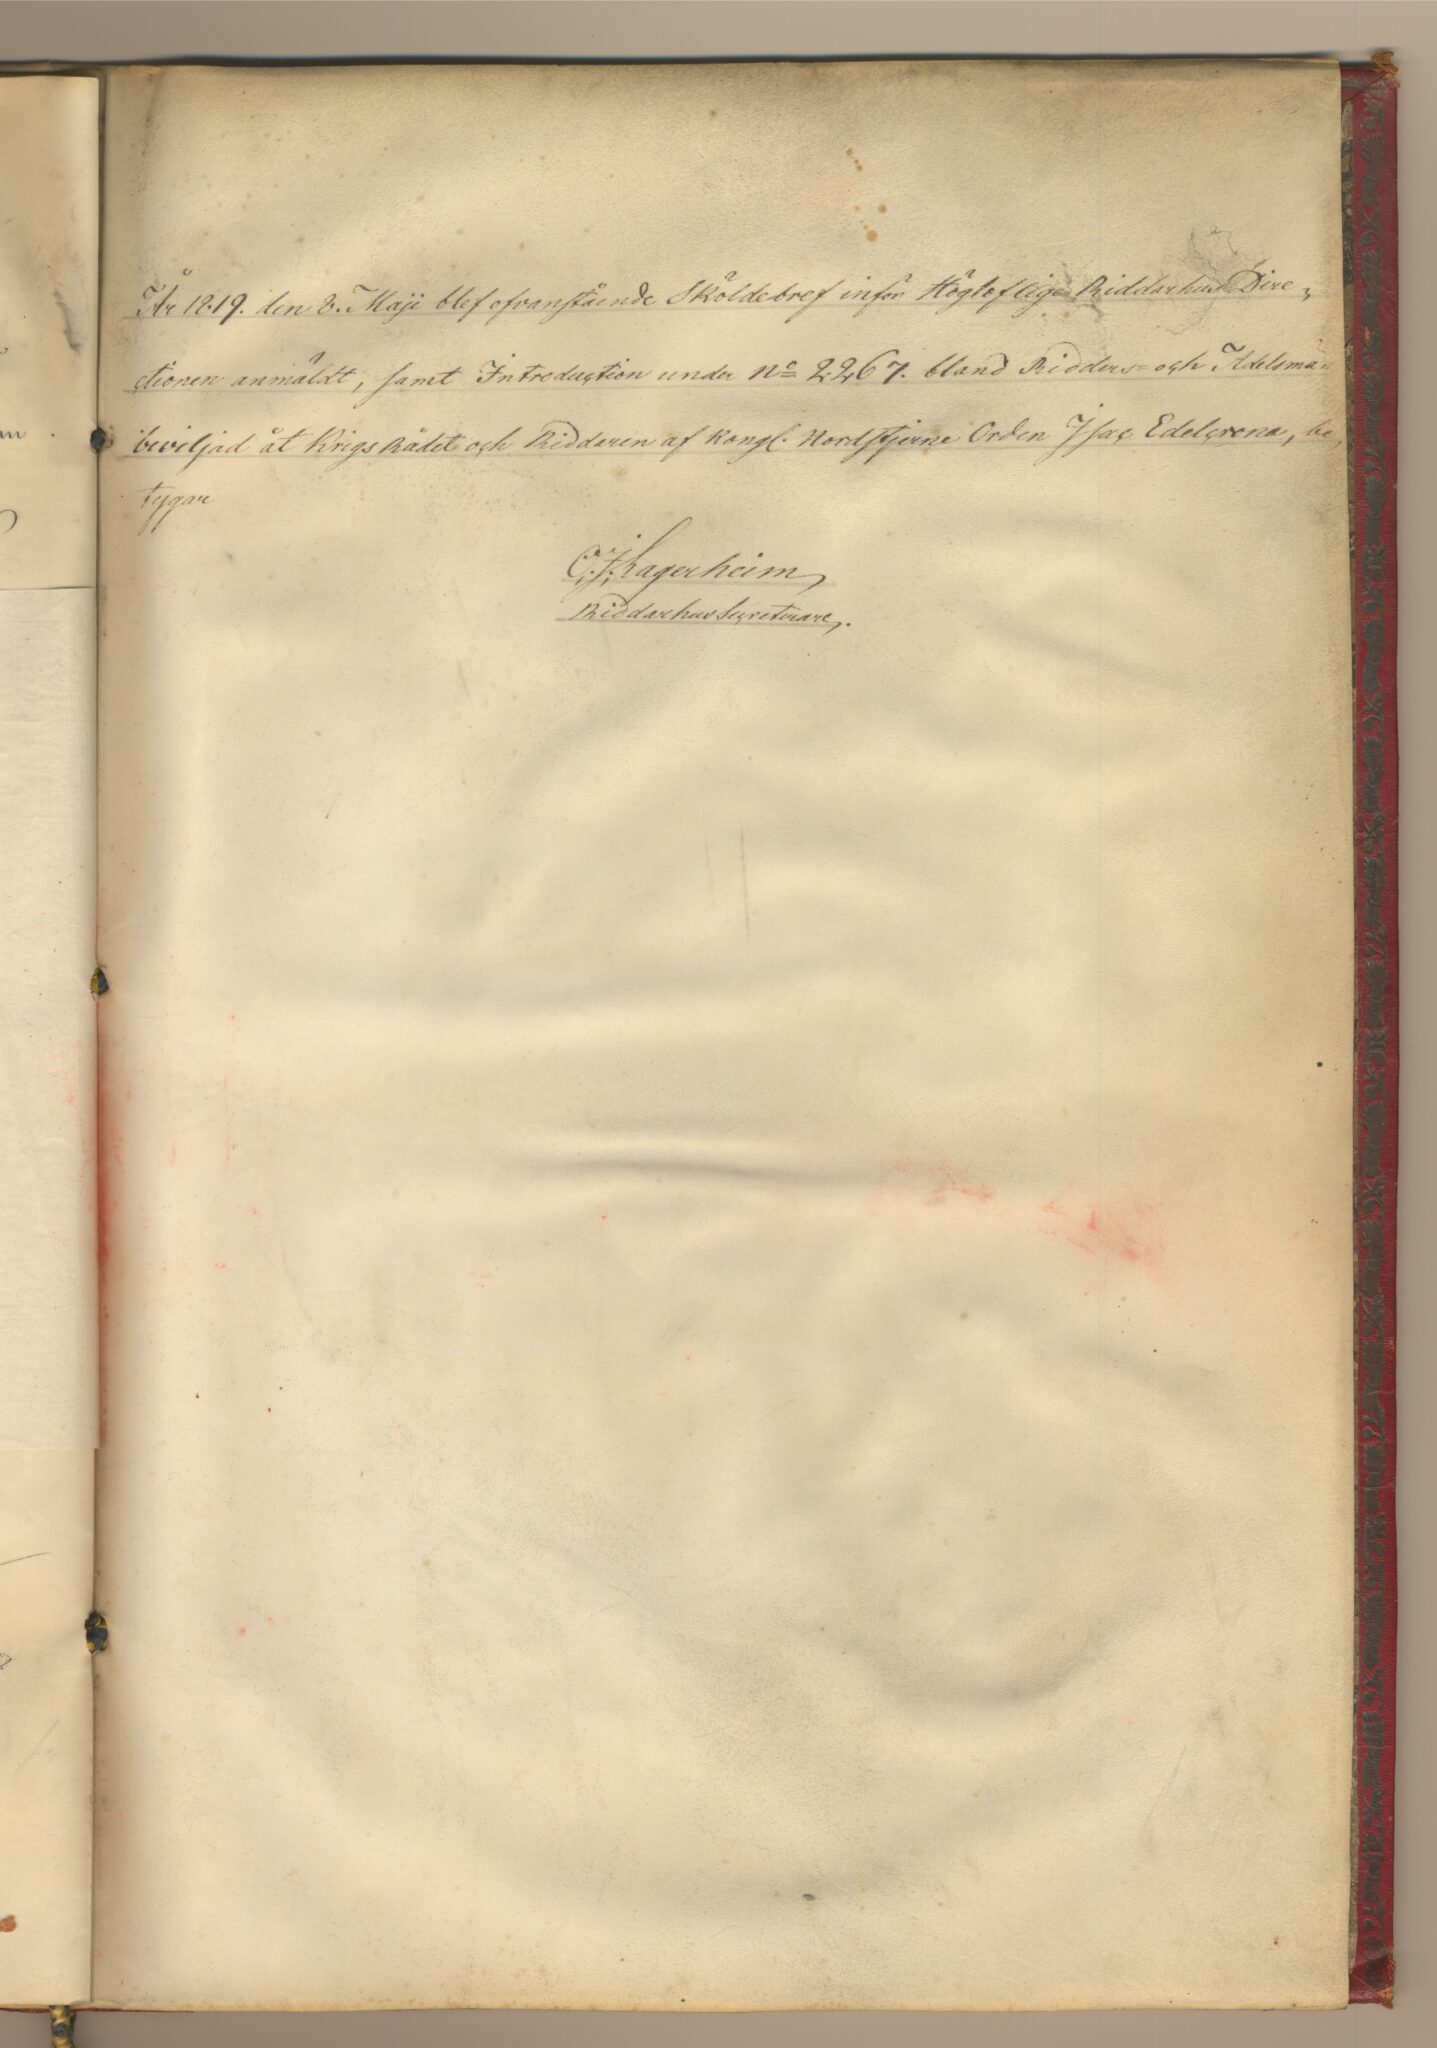 År 1819. den 8. Maji blef ofvanstående Sköldebref inför Högloflige Riddarhus Dire-
ctionen anmäldt, samt Introduction under No 2267. bland Ridders- och Adelsmän
beviljad åt KrigsRådet och Ridderen af Kongl. Nordstjerne Orden Isac Edelcrona, be-
tygar
C. J. Lagerheim
RiddarhusSecreterare.